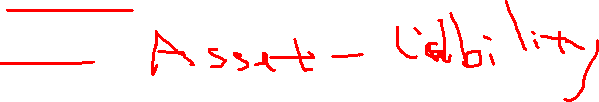 = Asset - Liability